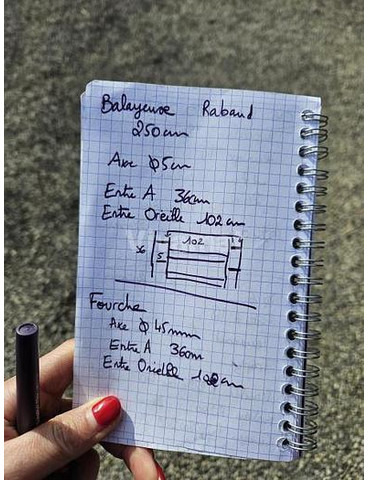 Balayeuse Rabaud
250cm
Axe ϕ5cm
Entre A 36cm
Entre Oreille 102cm
102
36
5
Fourche
Axe ϕ 45mm
Entre A 36cm
Entre Oreille